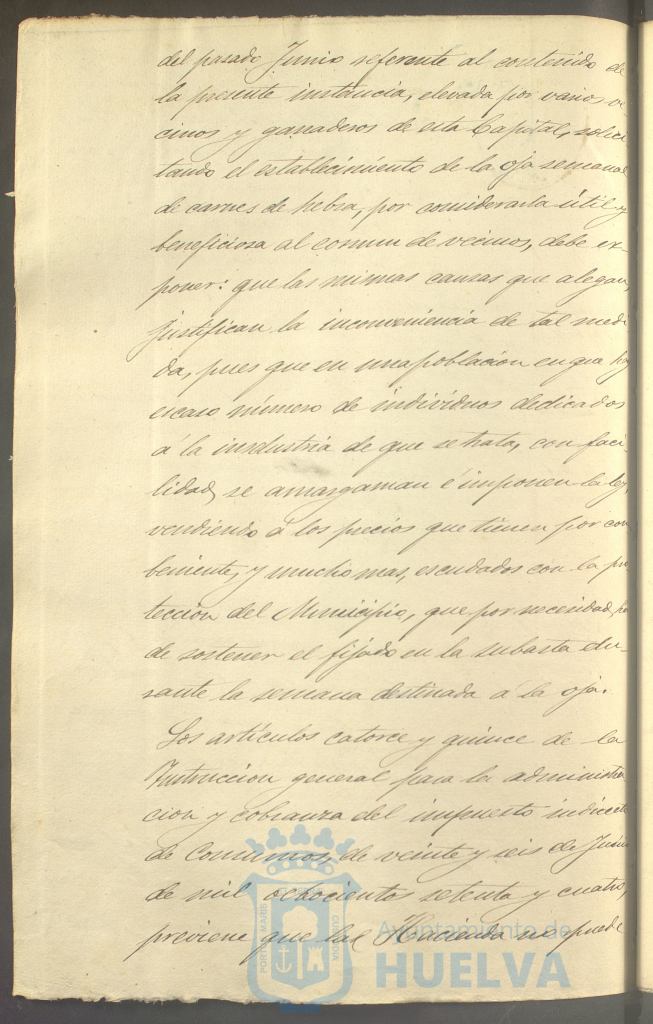 del pasado Junio referente al contenido de
la presente instancia, elevada por varios ve
cinos y ganaderos de esta Capital, solici
tando el establecimiento de la oja semanal
de carnes de hebra, por considerarla útil y
beneficiosa al comun de vecinos, debe ex-
poner: que las mismas causas que alegan,
justifican la inconveniencia de tal medi
da, pues que en una poblacion en que hay
escaso número de individuos dedicados
á la insdustria de que se trata, con faci-
lidad, se amargaman é imponen la ley,
vendiendo á los precios que tienen por con
beniente, y mucho mas, escudados con la pro
teccion del Municipio, que por necesidad, ha
de sostener el fijado en la subasta du-
rante la semana destinada á la oja.
Los artículos catorce y quince de la
Instruccion general para la administra
cion y cobranza del impuesto indirecto
de Consumos, de veinte y seis de Junio
de mil ochocientos setenta y cuatro,
previene que la Hacienda no puede
Ayuntamiento de
HUELVA
PORTUS MARIS
CUSTODIA